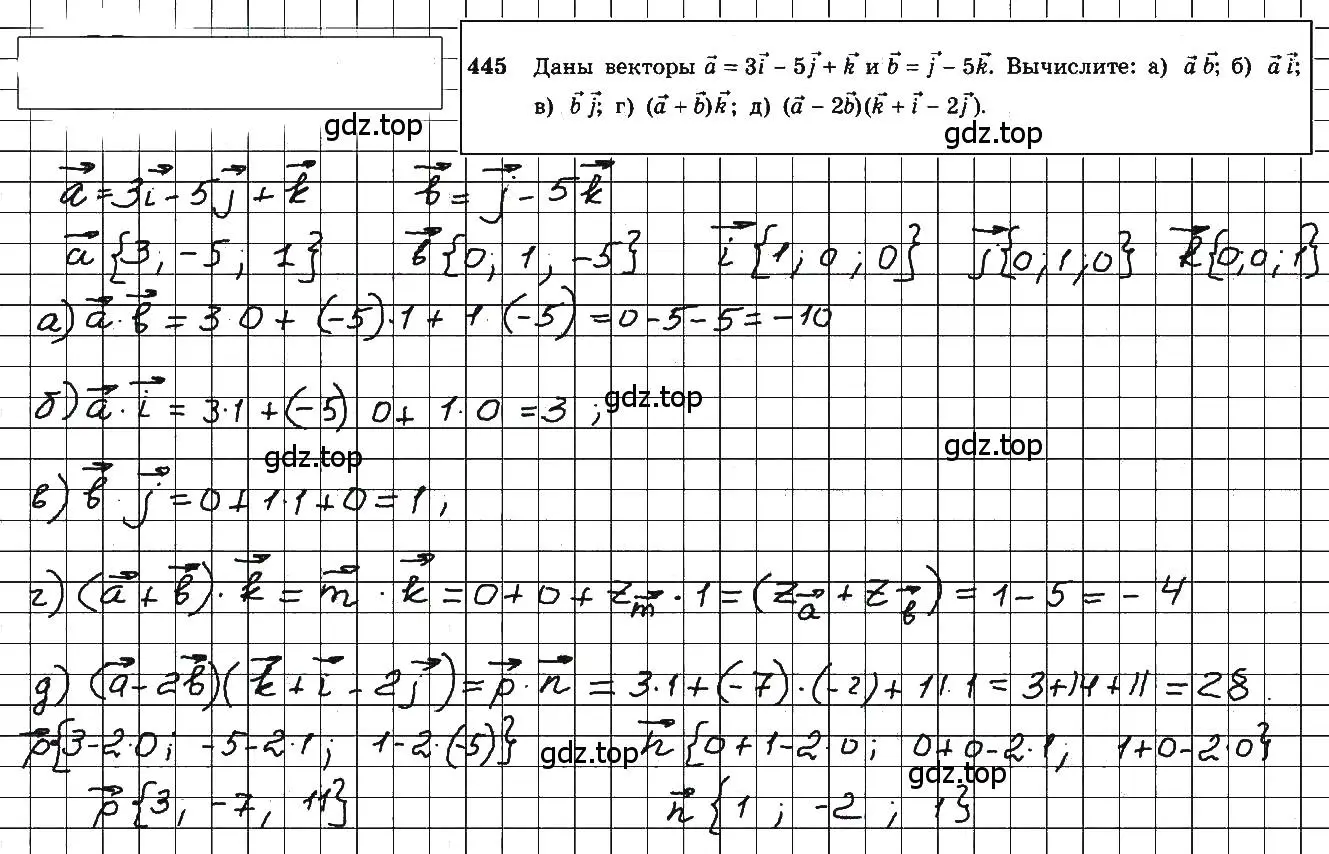 445 Даны векторы a⃗ = 3i⃗ – 5j⃗ + k⃗ и b⃗ = j⃗ – 5k⃗. Вычислите: а) a⃗ b⃗; б) a⃗ i⃗;
в) b⃗ j⃗; г) (a⃗ + b⃗)k⃗; д) (a⃗ – 2b⃗)(k⃗ + i⃗ – 2j⃗).
gdz.top gdz.top
a⃗ = 3i⃗ - 5j⃗ + k⃗ b⃗ = j⃗ - 5k⃗
a⃗ {3; -5; 1} b⃗ {0; 1; -5} i⃗ {1; 0; 0} j⃗ {0; 1; 0} k⃗ {0; 0; 1}
а) a⃗ · b⃗ = 3 · 0 + (-5) · 1 + 1 · (-5) = 0 - 5 - 5 = -10
б) a⃗ · i⃗ = 3 · 1 + (-5) 0 + 1 · 0 = 3 ; gdz.top
gdz.top gdz.top
в) b⃗ j⃗ = 0 + 1 · 1 + 0 = 1,
г) (a⃗ + b⃗) · k⃗ = m⃗ · k⃗ = 0 + 0 + z_m⃗ · 1 = (z_a⃗ + z_b⃗) = 1 - 5 = - 4
д) (a⃗ - 2b⃗)(k⃗ + i⃗ - 2j⃗) = p⃗ · n⃗ = 3 · 1 + (-7) · (-2) + 11 · 1 = 3 + 14 + 11 = 28.
p⃗ {3 - 2 · 0; -5 - 2 · 1; 1 - 2 · (-5)} gdz.top n⃗ {0 + 1 - 2 · 0; 0 + 0 - 2 · 1; 1 + 0 - 2 · 0}
gdz.top
p⃗ {3; -7; 11} n⃗ {1; -2; 1}